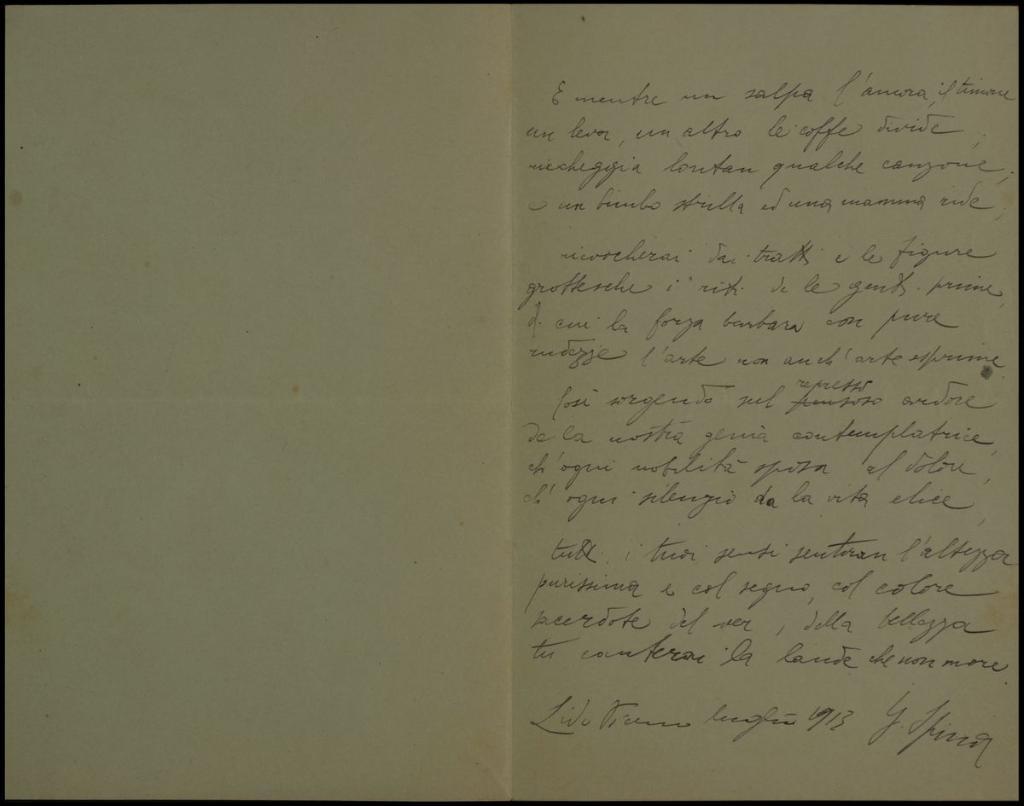 E mentre un salpa l'àncora, il timone
un leva, un altro le coffe divide,
riecheggia lontan qualche canzone,
e un bimbo strilla ed una mamma ride,
riconoscerai dai tratti e le figure
grottesche i riti de le genti prime,
di cui la forza barbara con pure
rudezze l'arte non anch'arte esprime.
Così sorgendo sul represso ardore
de la nostra genia contemplatrice,
ch'ogni nobiltà sposa al dolore,
ch'ogni silenzio da la vita elice,
tutti i tuoi sensi sentiran l'altezza
purissima e col segno, col colore
sacerdote del ver, della bellezza
tu canterai la laude che non more.
Lido luglio 1913 G. Spina